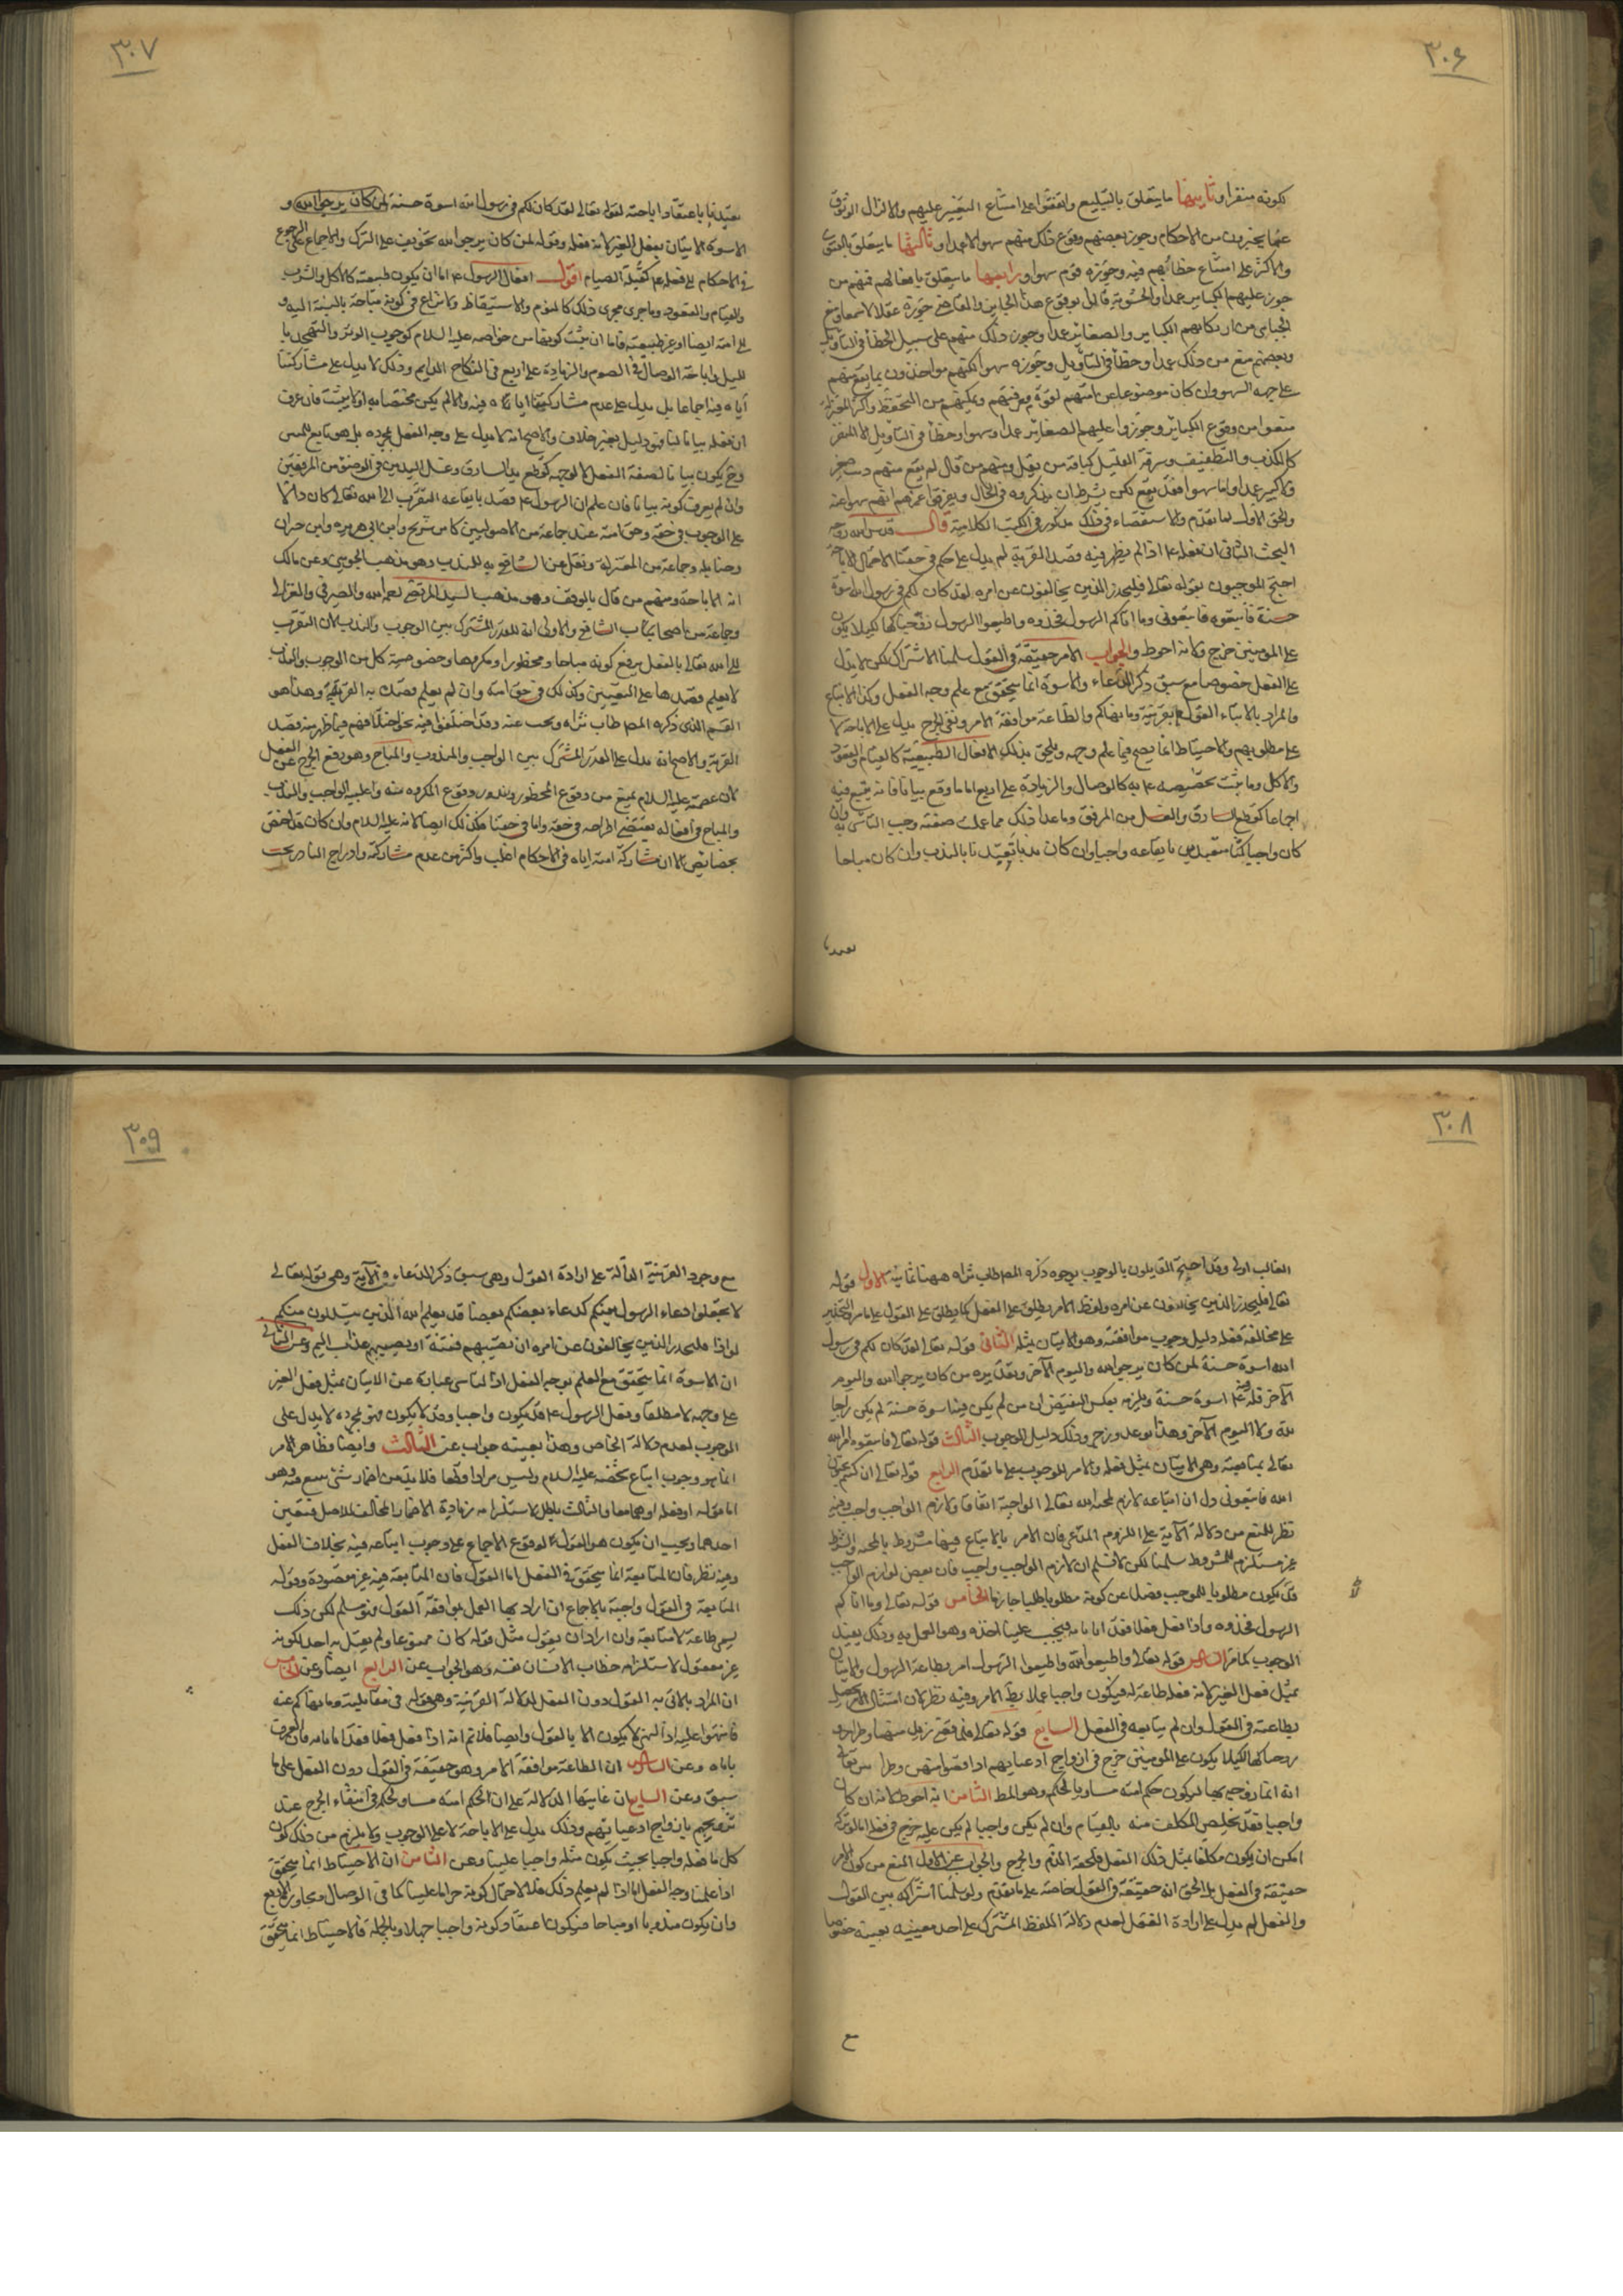 ٣٠۶
لكونه منفرا وثانيها ما يتعلق بالتبليغ واتفقوا على امتناع التغيير عليهم والا لزال الوثوق
عما يخبرون من الاحكام وجوز بعضهم وقوع ذلك منهم سهوا لا عمدا وثالثها ما يتعلق بالفتوى
والاكثر على امتناع خطائهم فيه وجوزه قوم سهوا ورابعها ما يتعلق بافعالهم فمنهم من
جوز عليهم الكباير عمدا والحشوية قالوا بوقوع هذا الجايز والقاضي جوزه عقلا لا سمعا ومنع
الجبائي من ارتكابهم الكباير والصغاير عمدا وجوز ذلك منهم على سبيل الخطأ في التأويل
وبعضهم منع من ذلك عمدا وخطأ في التأويل وجوزه سهوا لكنهم مواخذون بما يقع منهم
على جهة السهو وان كان موضوعا عن امتهم لقوة معرفتهم وتمكنهم من التحفظ واكثر المعتزلة
منعوا من وقوع الكبائر وجوزوا عليهم الصغائر عمدا وسهوا وخطأ في التأويل الا المنفر
كالكذب والتطفيف وسرقة القليل كباقة من بقل ومنهم من قال لم يقع منهم ذنب صغير
ولا كبير عمدا واما سهوا فقد يقع لكن بشرط ان يذكروه في الحال ويعرفوا غيرهم انهم سهوا عنه
والحق الاول لما تقدم والاستقصاء في ذلك مذكور في الكتب الكلامية قال قدس الله روحه
البحث الثاني ان فعله ع اذا لم يظهر فيه قصد القربة لم يدل على حكم في حقنا لاحتمال الاباحة
احتج الموجبون بقوله تعالى فليحذر الذين يخالفون عن امره لقد كان لكم في رسول الله اسوة
حسنة فاتبعوه فاتبعوني وما اتاكم الرسول فخذوه واطيعوا الرسول زوجناكها لكيلا يكون
على المومنين حرج ولانه احوط والجواب الامر حقيقة في القول سلمنا الاشتراك لكن لا يدل
على الفعل خصوصا مع سبق ذكر الدعاء والاسوة انما يتحقق مع علم وجه الفعل وكذا الاتباع
والمراد بالاتباء القول بقرينة وما نهاكم والطاعة موافقة الامر ونفي الحرج يدل على الاباحة لا
على مطلوبهم والاحتياط انما يصح فيما علم وجهه ويلحق بذلك الافعال الطبيعية كالقيام والقعود
والاكل وما ثبت تخصيصه ع به كالوصال والزيادة على اربع اما ما وقع بيانا فانه يتبع فيه
اجماعا كقطع السارق والغسل من المرفق وما عدا ذلك مما علمت صفته وجب التأسي به وان
كان واجبا كنا متعبدين بايقاعه واجبا وان كان ندبا تعبدنا بالندب وان كان مباحا
تعبدنا
٣٠٧
تعبدنا باعتقاد اباحته لقوله تعالى لقد كان لكم في رسول الله اسوة حسنة لمن كان يرجوا الله و
الاسوة الاتيان بفعل الغير لانه فعله وقوله لمن كان يرجوا الله تخويف على الترك والاجماع على الرجوع
في الاحكام الى فعله ع كقبلة الصيام اقول افعال الرسول ع اما ان يكون طبيعته كالاكل والشرب
والقيام والقعود وما جرى مجرى ذلك كالنوم والاستيقاظ ولا نزاع في كونه مباحة بالنسبة اليه و
الى امته ايضا او غير طبيعته فاما ان يثبت كونها من خواصه عليه السلام كوجوب الوتر والتهجد با
لليل واباحة الوصال في الصوم والزيادة على اربع في النكاح الدايم وذلك لا يدل على مشاركتنا
اياه فيه اجماعا بل يدل على عدم مشاركتنا اياه فيه والا لم يكن مختصا به او لا يثبت فان عرف
ان فعله بيانا لنا فهو دليل بغير خلاف والاصح انه لا يدل على وجه الفعل بمجرده بل هو تابع للمبين
وقد يكون بيانا لصفة الفعل لا لوجهه كقطع يد السارق وغسل اليدين في الوضوء من المرفقين
وان لم يعرف كونه بيانا فان علم ان الرسول ع قصد بايقاعه التقرب الى الله تعالى كان دالا
على الوجوب في حقه وحق امته عند جماعة من الاصوليين كابن شريح وابن ابي هريرة وابن خيران
وحنابلة وجماعة من المعتزلة ونقل عن الشافعي به للندب وهو مذهب الجويني وعن مالك
انه الاباحة ومنهم من قال بالوقف وهو مذهب السيد المرتضى رحمه الله والصيرفي والغزالي
وجماعة من اصحاب الشافعي والاولى انه للقدر المشترك بين الوجوب والندب لان التقرب
الى الله تعالى بالفعل يرفع كونه مباحا ومحظورا ومكروها وخصوصية كل من الوجوب والندب
لا يعلم قصدها على التعيين وكذلك في حق امته وان لم يعلم قصده به القربة وهذا هو
القسم الذي ذكره المصـ طاب ثراه وبحث عنه وقد اختلفوا فيه نحو اختلافهم فيما ظهر منه قصد
القربة والاصح انه يدل على القدر المشترك بين الواجب والمندوب والمباح وهو رفع الحرج عن الفعل
لان عصمته عليه السلام يمنع من وقوع المحظور وندور وقوع المكروه منه واغلبية الواجب والندب
والمباح في افعاله يقتضي اطراحه في حقه واما في حقنا فكذلك ايضا لانه عليه السلام وان كان قد اختص
بخصايص الا ان مشاركة امته اياه في الاحكام اغلب واكثر من عدم مشاركته وادراج النادر تحت
٣٠٨
الغالب اولى وقد احتج القايلون بالوجوب بوجوه ذكره المصـ طاب ثراه ههنا ثمانية الاول قوله
تعالى فليحذر الذين يخالفون عن امره ولفظ الامر يطلق على الفعل كما يطلق على القول على ما مر والتحذير
على مخالفة فعله دليل وجوب موافقته وهو الاتيان بمثله الثاني قوله تعالى لقد كان لكم في رسول
الله اسوة حسنة لمن كان يرجوا الله واليوم الآخر وتقديره من كان يرجوا الله واليوم
الآخر فله فيه اسوة حسنة ويلزمه بعكس النقيض ان من لم يكن فيه اسوة حسنة لم يكن راجيا
لله ولا اليوم الآخر وهذا توعد وزجر وذلك دليل الوجوب الثالث قوله تعالى فاتبعوه امر الله
تعالى بمتابعته وهي الاتيان بمثل فعله والامر للوجوب على ما تقدم الرابع قوله تعالى ان كنتم تحبون
الله فاتبعوني دل ان اتباعه لازم لمحبة الله تعالى الواجبة اتفاقا ولازم الواجب واجب وفيه
نظر للمنع من دلالة الآية على اللزوم المدعى فان الامر بالاتباع فيها مشروط بالمحبة والشرط
غير مستلزم للمشروط سلمنا لكن لا نسلم ان لازم الواجب واجب فان بعض لوازم الواجب
قد يكون مطلوبا للموجب فضلا عن كونه مطلوبا طلبا جازما الخامس قوله تعالى وما اتاكم
الرسول فخذوه واذا فعل فعلا فقد اتانا به فيجب علينا اخذه وهو العمل به وذلك يفيد
الوجوب كما مر السادس قوله تعالى واطيعوا الله واطيعوا الرسول امر بطاعة الرسول والاتيان
بمثل فعل الغير لانه فعله طاعة له فيكون واجبا عملا بظـ الامر وفيه نظر لان امتثال الامر يحصل
بطاعته في القول وان لم يتابعه في الفعل السابع قوله تعالى فلما قضى زيد منها وطرا
زوجناكها لكيلا يكون على المومنين حرج في ازواج ادعيايهم اذا قضوا منهن وطرا بين تعالى
انه انما زوجه بها ليكون حكم امته مساويا لحكمه وهو المطـ الثامن انه احوط لانه ان كان
واجبا فقد تخلص المكلف منه بالقيام وان لم يكن واجبا لم يكن عليه حرج في فعله اما لو تركه
امكن ان يكون مكلفا بمثل ذلك الفعل فلحقه الذم والحرج والجواب عن الاول المنع من كون الامر
حقيقة في الفعل بل الحق انه حقيقة في القول خاصة على ما تقدم ولو سلمنا اشتراكه بين القول
والفعل لم يدل على ارادة الفعل لعدم دلالة اللفظ المشترك على احد معنييه بعينه خصوصا
مع
٣٠٩
مع وجود القرينة الدالة على ارادة القول وهي سبق ذكر الدعاء في الآية وهي قوله تعالى
لا تجعلوا دعاء الرسول بينكم كدعاء بعضكم بعضا قد يعلم الله الذين يتسللون منكم
لواذا فليحذر الذين يخالفون عن امره ان تصيبهم فتنة او يصيبهم عذاب اليم وعن الثاني
ان الاسوة انما يتحقق مع العلم بوجه الفعل اذ التاسي عبارة عن الاتيان بمثل فعل الغير
على وجهه لا مطلقا وفعل الرسول ع قد يكون واجبا وقد لا يكون فهو بمجرده لا يدل على
الوجوب لعدم دلالة الخاص وهذا بعينه جواب عن الثالث وايضا فظاهر الامر
انما هو وجوب اتباع شخصه عليه السلام وليس مرادا قطعا فلا بد من اضمار شئ يتبع فيه وهو
اما قوله او فعله او هما معا والثالث باطل لاستلزامه زيادة الاضمار المخالف للاصل فتعين
احدهما ويجب ان يكون هو القول لوقوع الاجماع على وجوب اتباعه فيه بخلاف الفعل
وفيه نظر فان المتابعة انما يتحقق في الفعل اما القول فان المتابعة فيه غير مقصودة وقوله
المتابعة في القول واجبة بالاجماع ان اراد بها العمل بموافقة القول فهو مسلم لكن ذلك
ليسمى طاعة لا متابعة وان اراد ان يقول مثل قوله كان ممنوعا ولم يقل به احد لكونه
غير معقول لاستلزامه خطاب الانسان نفسه وهو الجواب عن الرابع ايضا وعن الخامس
ان المراد بالاتي به القول دون الفعل لدلالة القرينة وهي قوله في مقابلته وما نهاكم عنه
فانتهوا عليه اذ النهي لا يكون الا بالقول وايضا فلا تم انه اذا فعل فعلا فقد اتانا به
وعن السادس ان الطاعة موافقة الامر وهو حقيقة في القول دون الفعل على ما
سبق وعن السابع ان غايتها الدلالة على ان حكم امته مساو لحكمه في انتفاء الحرج عند
تزويجهم بازواج ادعيائهم وذلك يدل على الاباحة لا على الوجوب ولا يلزم من ذلك كون
كل ما فعله واجبا بحيث يكون مثله واجبا علينا وعن الثامن ان الاحتياط انما يتحقق
اذا علمنا وجه الفعل اما اذا لم يعلم ذلك فلا لاحتمال كونه حراما علينا كما في الوصال وتجاوز الاربع
وان يكون مندوبا او مباحا فيكون اعتقاد كونه واجبا جهلا وبالجملة فالاحتياط انما يتحقق